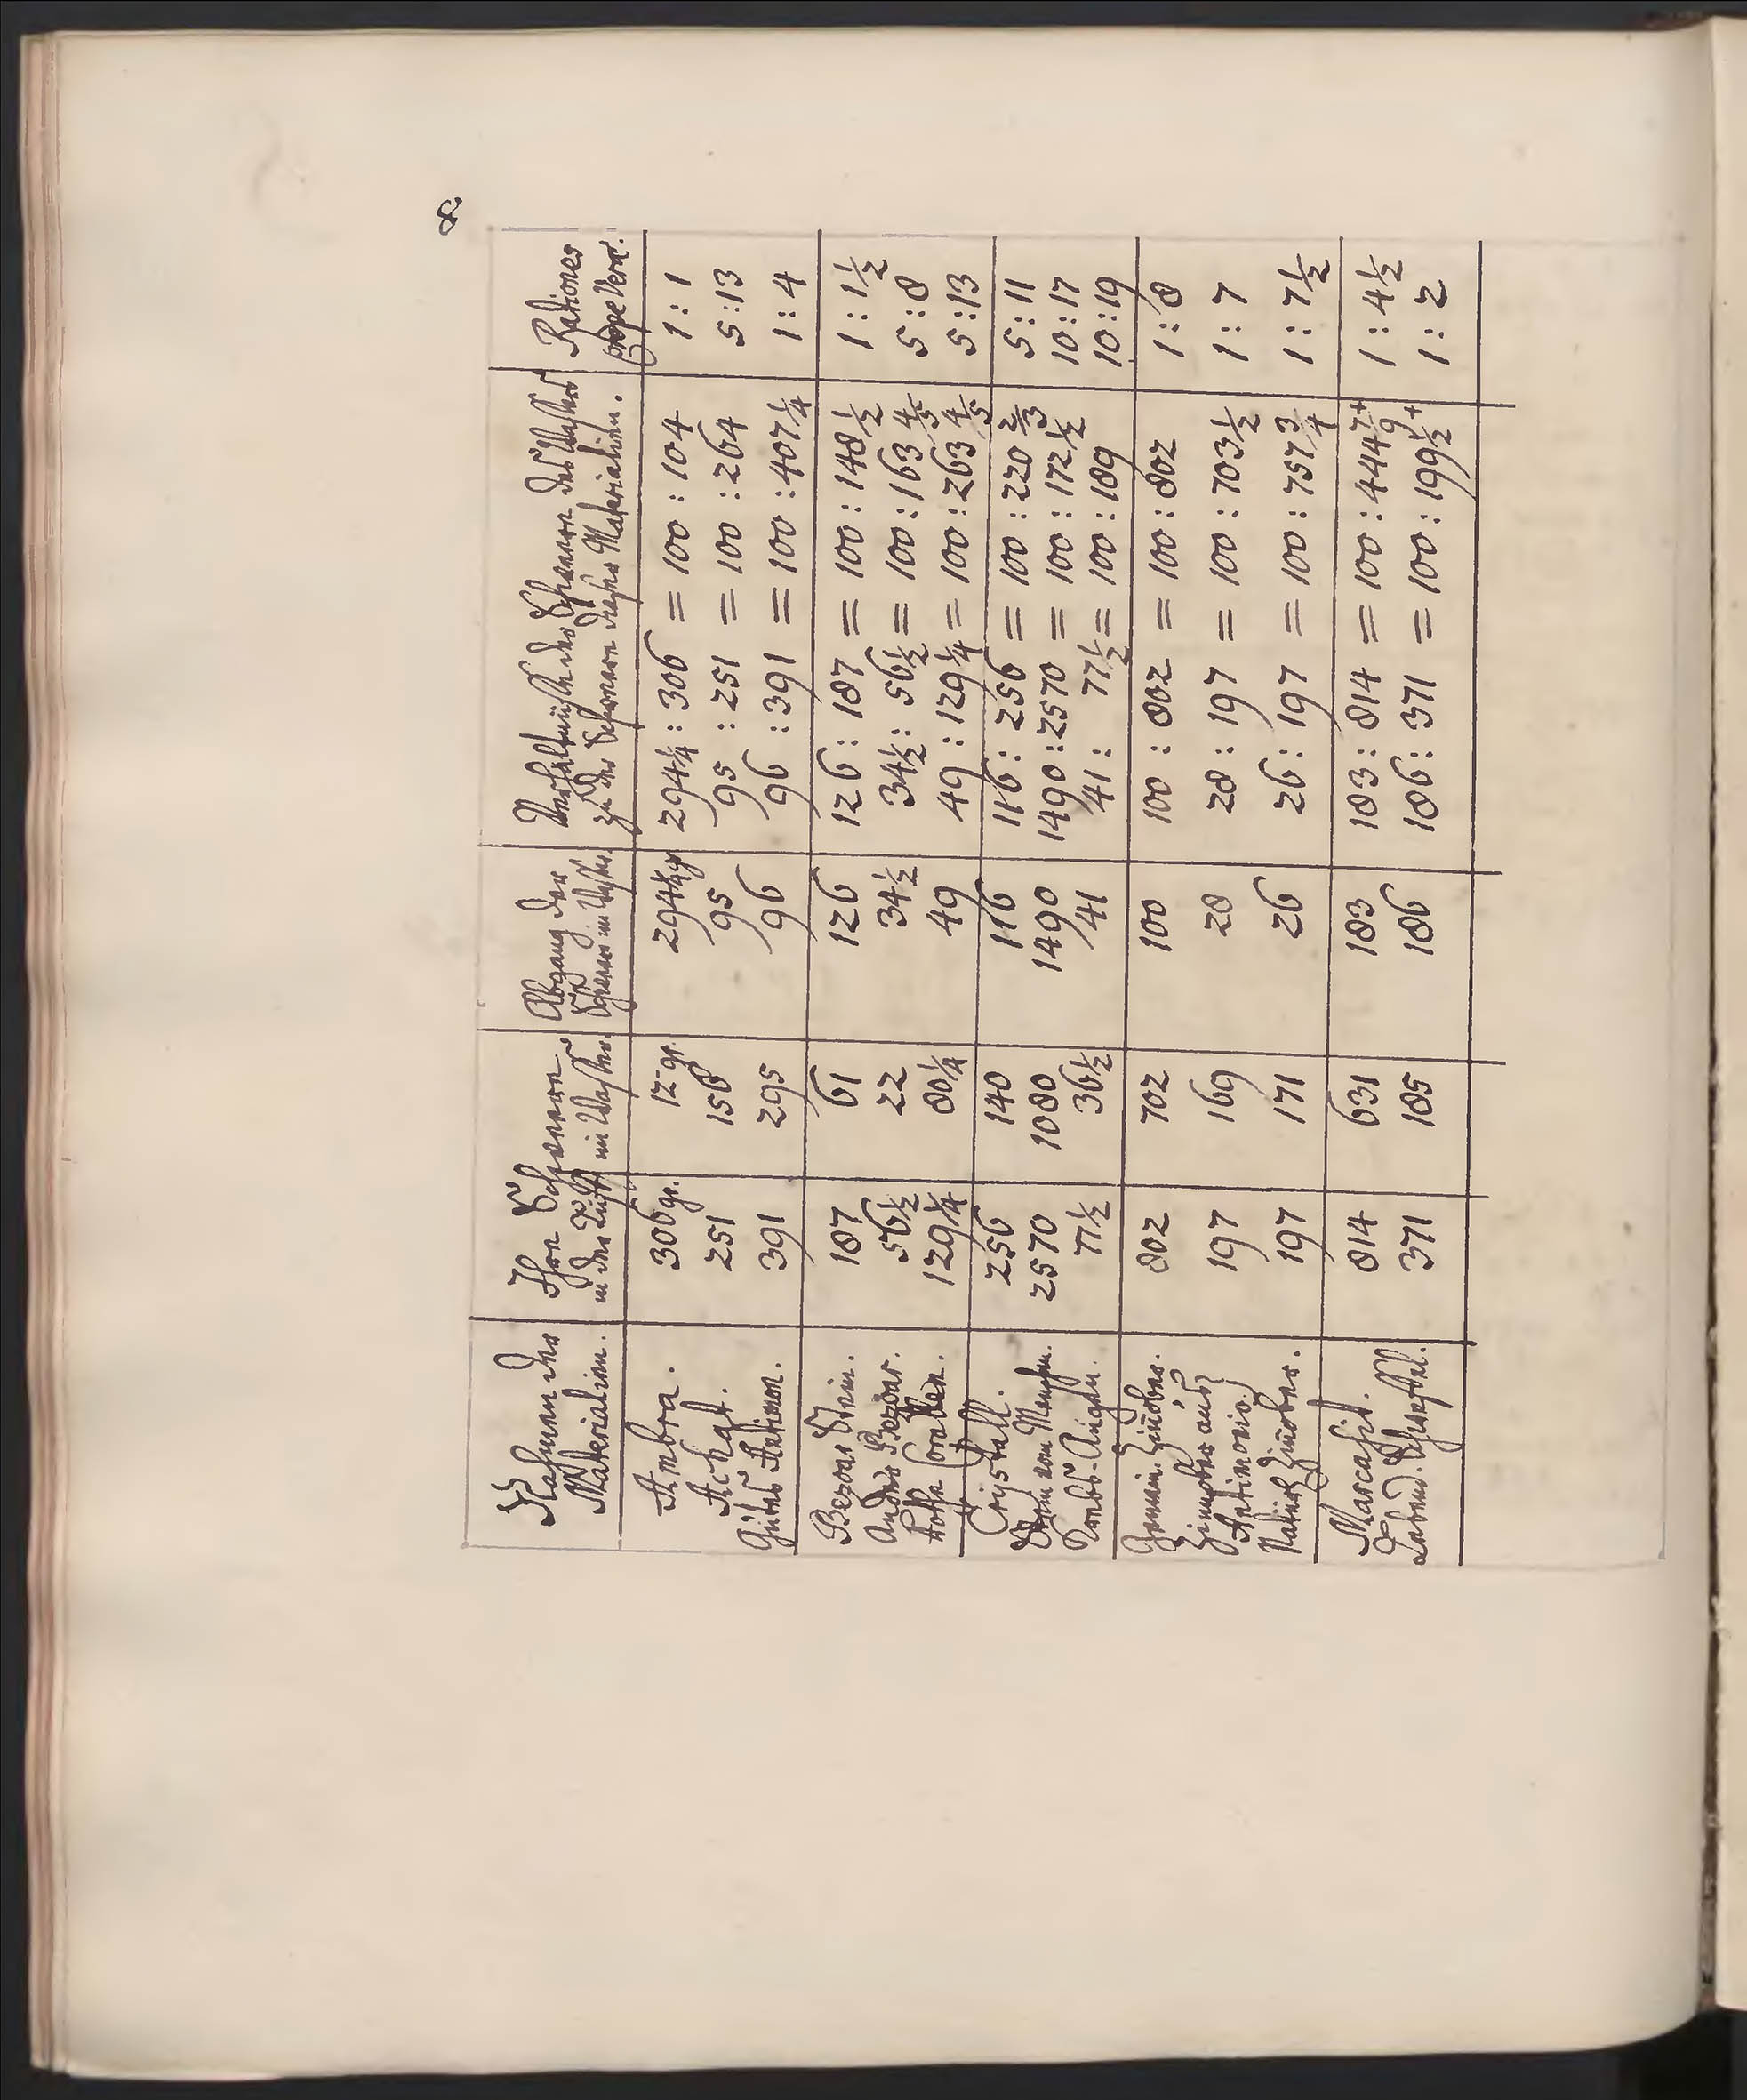 8.
Nahmen der Materialien. | Ihre Schwere in der Lufft | im Wasser. | Abgang der Schwere im Wasser. | Verhältnüsse der Schwere des Wassers zu der Schwere dieser Materialien. | Rationes prope Veræ.
Ambra. | 306 gr. | 12- gr. | 294¼ gr | 294¼ : 306 = 100 : 104 | 1 : 1
Achat. | 251 | 156 | 95 | 95 : 251 = 100 : 264 | 5 : 13
Gutes Antimon. | 391 | 295 | 96 | 96 : 391 = 100 : 407¼ | 1 : 4
Bezoar Stein. | 187 | 61 | 126 | 126 : 187 = 100 : 148½ | 1 : 1½
Andrer Bezoar. | 56½ | 22 | 34½ | 34½ : 56½ = 100 : 163⅘ | 5 : 8
Rothe Corallen. | 129¼ | 80¼ | 49 | 49 : 129¼ = 100 : 263⅘ | 5 : 13
Crystall. | 256 | 140 | 116 | 116 : 256 = 100 : 220⅔ | 5 : 11
Stein vom Menschen. | 2570 | 1080 | 1490 | 1490 : 2570 = 100 : 172½ | 10 : 17
Krebs-Augen. | 77½ | 36½ | 41 | 41 : 77½ = 100 : 189 | 10 : 19
Gemein. Zinober. | 802 | 702 | 100 | 100 : 802 = 100 : 802 | 1 : 8
Zinnober auß Antimonio. | 197 | 169 | 28 | 28 : 197 = 100 : 703½ | 1 : 7
Natürl. Zinober. | 197 | 171 | 26 | 26 : 197 = 100 : 757¾ | 1 : 7½
Marcasit. | 814 | 631 | 183 | 183 : 814 = 100 : 444 7/9 + | 1 : 4½
Lebend. Schwefel. | 371 | 185 | 186 | 186 : 371 = 100 : 199½ + | 1 : 2